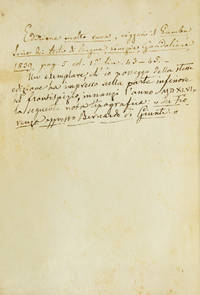 Edizione molto rara, veggasi il Gamba
Serie dei Testi di lingua
1839. pag. 5 col. 1ª lin. 43-45.
Un esemplare, ch'io posseggo della stessa
edizione ha impresso nella parte inferiore
del frontispizio, innanzi l'anno MDXLVI,
la seguente nota tipografica: In Fio-
renza appresso Bernardo di Giunta